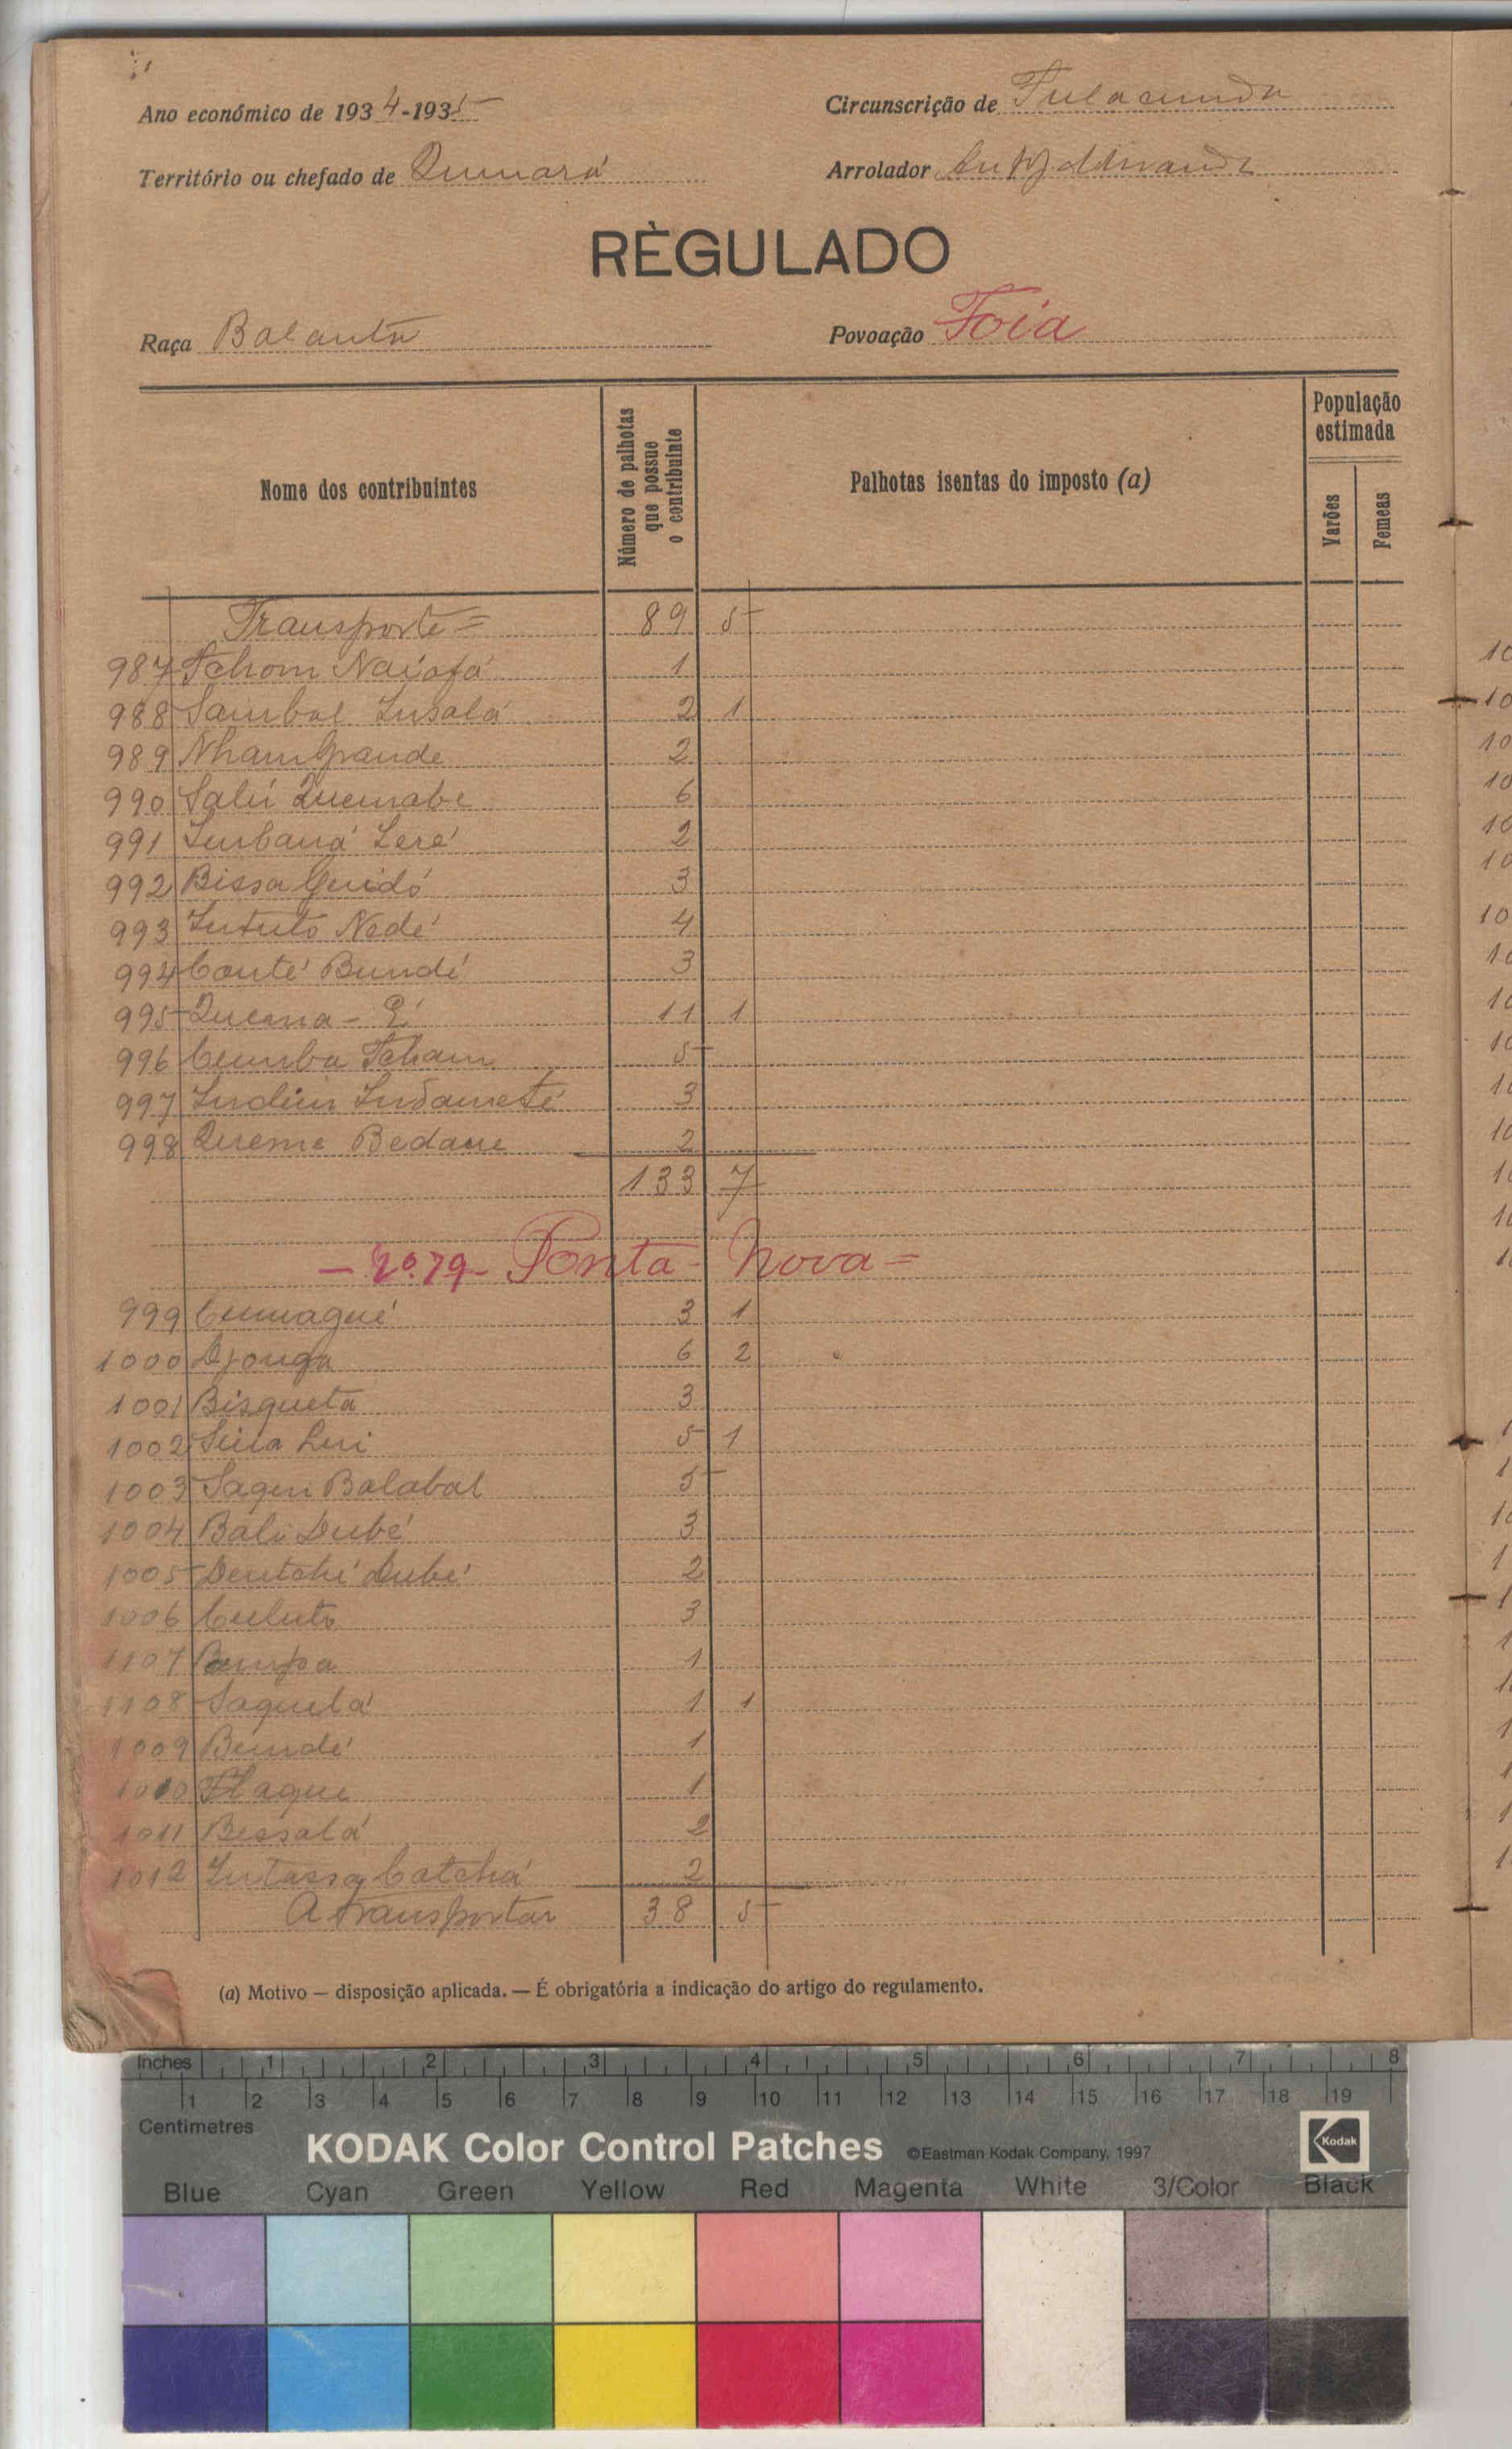 Ano económico de 1934-1935
Circunscrição de Fulacunda
Território ou chefado de Quinará
Arrolador
RÈGULADO
Raça Balanta
Povoação Foia
Nome dos contribuintes
Número de palhotas que possue o contribuinte
Palhotas isentas do imposto (a)
População estimada
Varões
Femeas
Transporte = 89 5
987 Tchom Naiafá 1
988 Sambal Insalá 2 1
989 Nham Grande 2
990 Saliú Quemabe 6
991 Inbaná Leré 2
992 Bissa Guidó 3
993 Intuto Nedé 4
994 Conté Bundé 3
995 Quenna - É 11 1
996 Cumba Tcham 5
997 Indim Indameté 3
998 Queme Bedane 2
133 7
- Nº. 79 - Ponta - Nova =
999 Cumagué 3 1
1000 Djonga 6 2
1001 Bisqueta 3
1002 5 1
1003 Saqui Balabal 5
1004 Bali Dubé 3
1005 Dentchi Dubé 2
1006 Culuto 3
1107 Bampa 1
1108 Saquelá 1 1
1009 Bundé 1
1010 1
1011 Bessalá 2
1012 Intassa Catchá 2
A transportar 38 5
(a) Motivo — disposição aplicada. — É obrigatória a indicação do artigo do regulamento.
Inches 1 2 3 4 5 6 7 8
1 2 3 4 5 6 7 8 9 10 11 12 13 14 15 16 17 18 19
Centimetres
KODAK Color Control Patches ©Eastman Kodak Company, 1997 Kodak
Blue Cyan Green Yellow Red Magenta White 3/Color Black